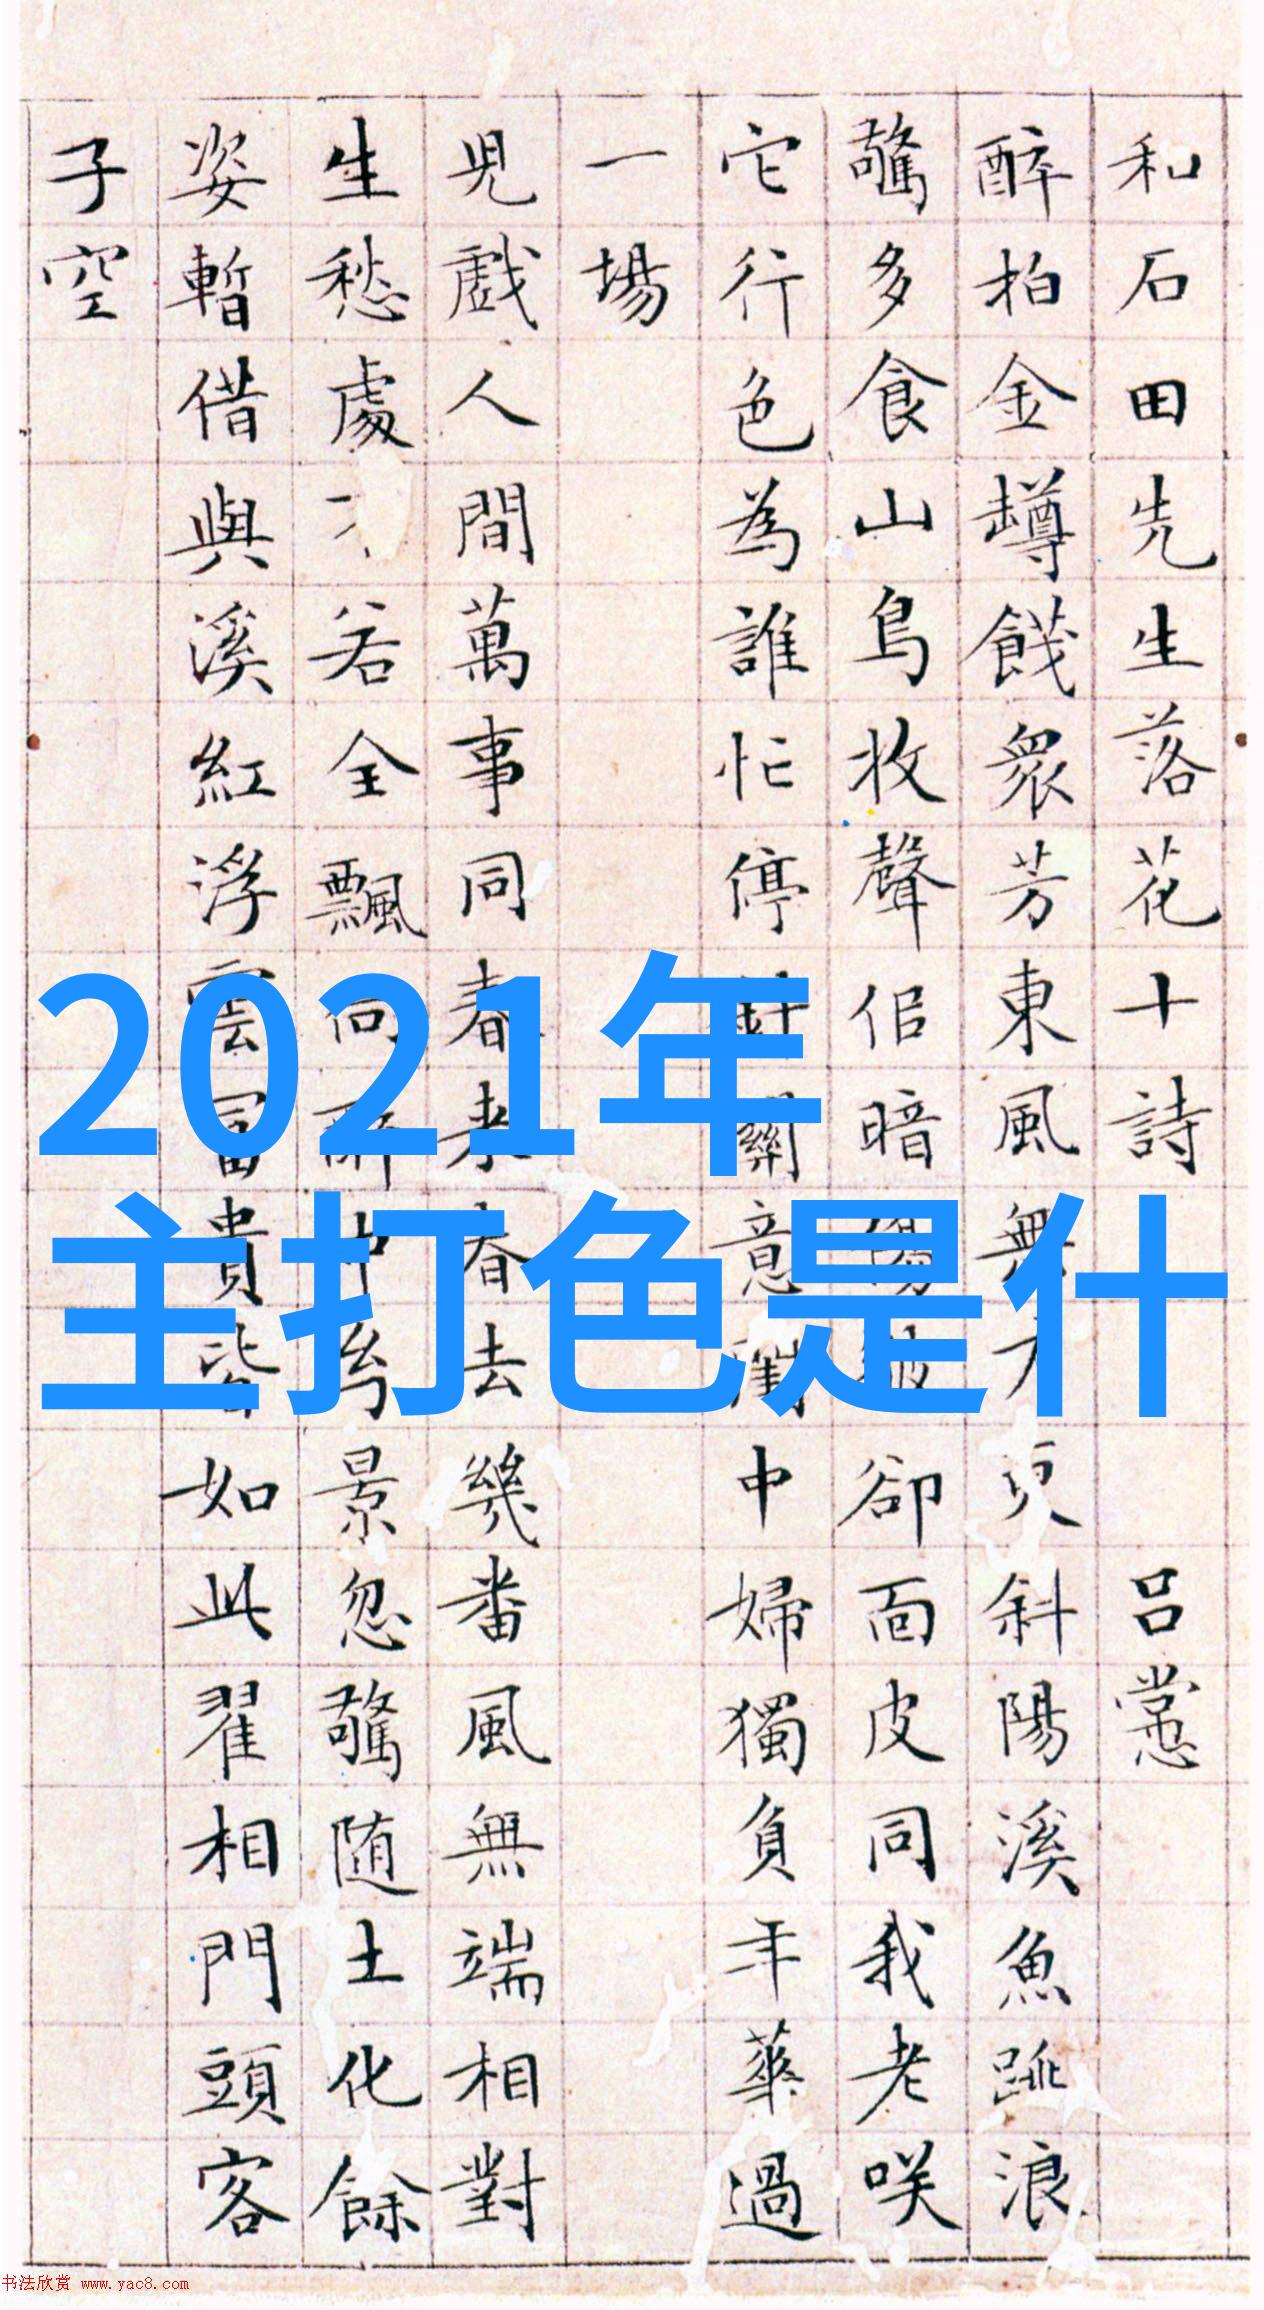 和石田先生落花十詩 吕㦂
醉拍金罇餞衆芳東風無 斜陽溪魚跳浪
驚多食山鳥收聲佀暗 卻面皮同我老咲
它行色為誰忙停 意 中婦獨負年華過
一場
児戲人間萬事同春来春去幾番風無端相對
生愁處 若全飄 景忽驚随土化餘
姿暫借與溪紅浮雲富貴皆如此翟相門頭客
子空
2021年
主打色是什
书法欣赏 www.yac8.com